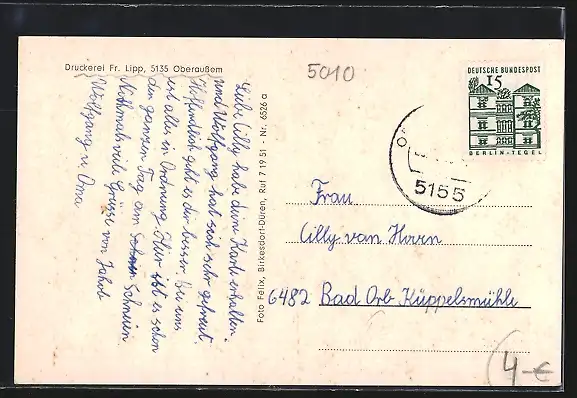 Druckerei Fr. Lipp, 5135 Oberaußem
Liebe Cilly habe deine Karte erhalten.
und Wolfgang hat sich sehr gefreut.
Hoffentlich geht es dir besser. Bei uns
ist alles in Ordnung. Hier ist es schon
den ganzen Tag am Schneien
Nochmals viele Grüsse von Jakob
Wolfgang u. Oma
Foto Felix, Birkesdorf-Düren, Ruf 7 19 51 - Nr. 6526 a
5010
DEUTSCHE BUNDESPOST
15
BERLIN-TEGEL
5155
Frau
Cilly van Hoorn
6482 Bad Orb Küppelsmühle
4 €